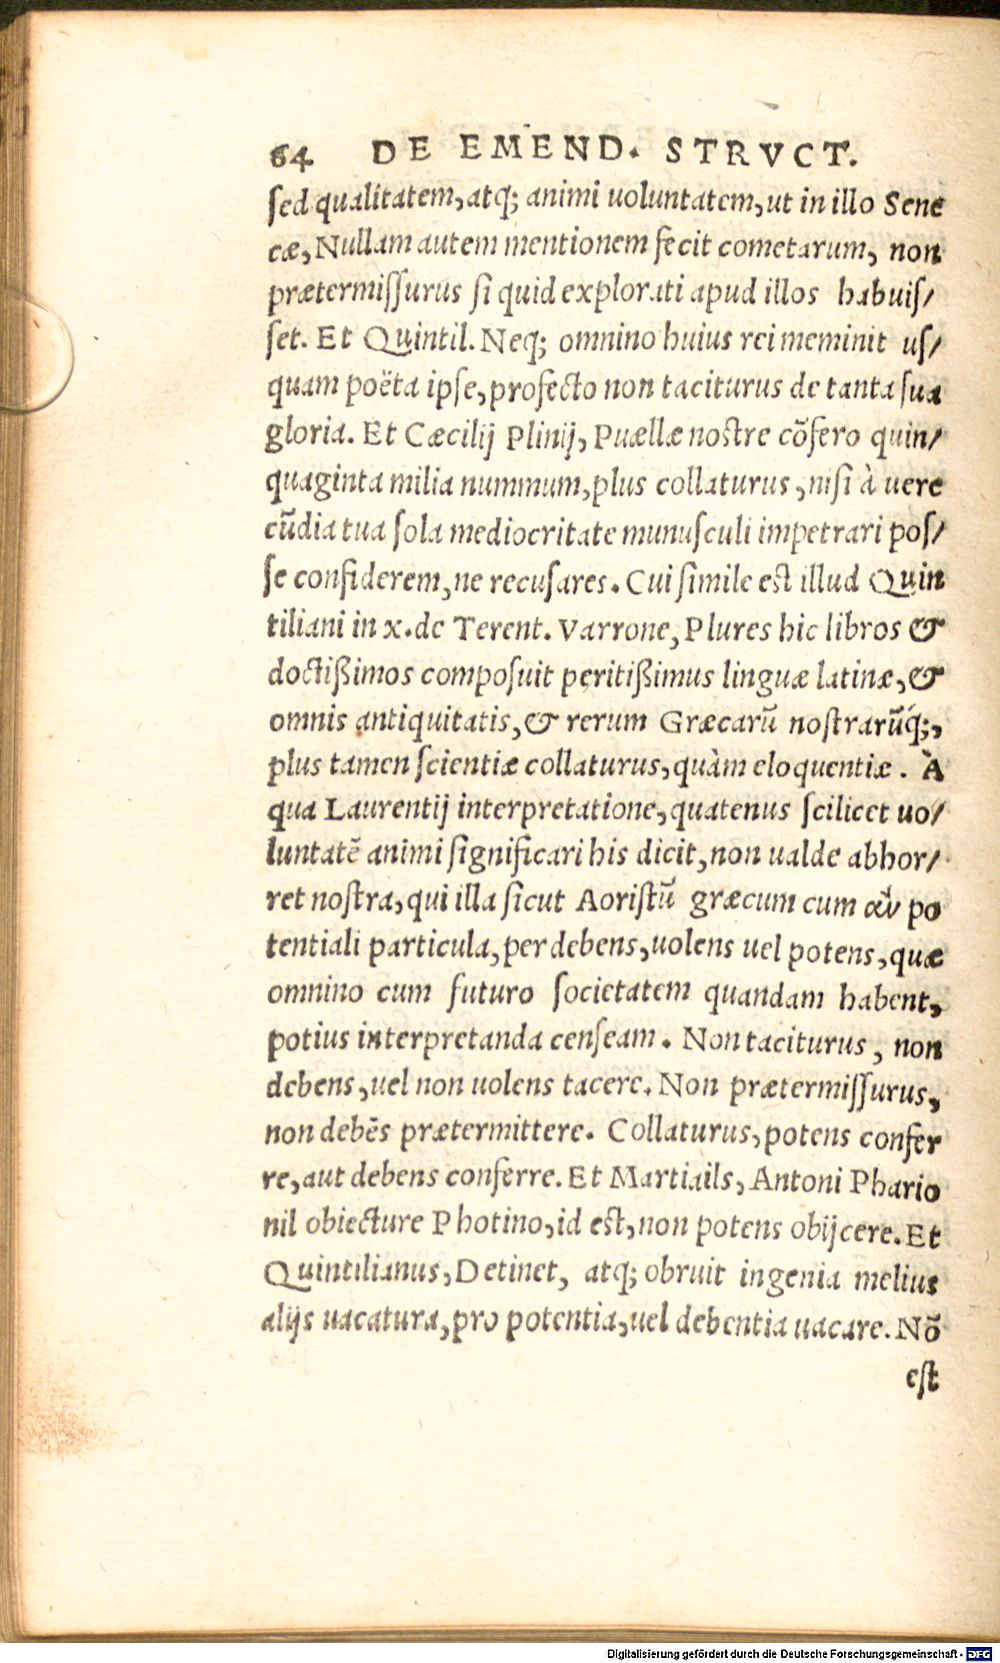 64 DE EMEND. STRVCT.
sed qualitatem, atq; animi uoluntatem, ut in illo Sene
cæ, Nullam autem mentionem fecit cometarum, non
prætermissurus si quid explorati apud illos habuis/
set. Et Quintil. Neq; omnino huius rei meminit us/
quam poëta ipse, profecto non taciturus de tanta sua
gloria. Et Cæcilij Plinij, Puællæ nostre cõfero quin/
quaginta milia nummum, plus collaturus, nisi à uere
cũdia tua sola mediocritate munusculi impetrari pos/
se confiderem, ne recusares. Cui simile est illud Quin
tiliani in x. de Terent. Varrone, Plures hic libros &
doctißimos composuit peritißimus linguæ latinæ, &
omnis antiquitatis, & rerum Græcarũ nostrarũq́;,
plus tamen scientiæ collaturus, quàm eloquentiæ. À
qua Laurentij interpretatione, quatenus scilicet uo/
luntatẽ animi significari his dicit, non ualde abhor/
ret nostra, qui illa sicut Aoristũ græcum cum ἂν po
tentiali particula, per debens, uolens uel potens, quæ
omnino cum futuro societatem quandam habent,
potius interpretanda censeam. Non taciturus, non
debens, uel non uolens tacere. Non prætermissurus,
non debẽs prætermittere. Collaturus, potens confer
re, aut debens conferre. Et Martiails, Antoni Phario
nil obiecture Photino, id est, non potens obijcere. Et
Quintilianus, Detinet, atq; obruit ingenia melius
alijs uacatura, pro potentia, uel debentia uacare. Nõ
est
Digitalisierung gefördert durch die Deutsche Forschungsgemeinschaft - DFG